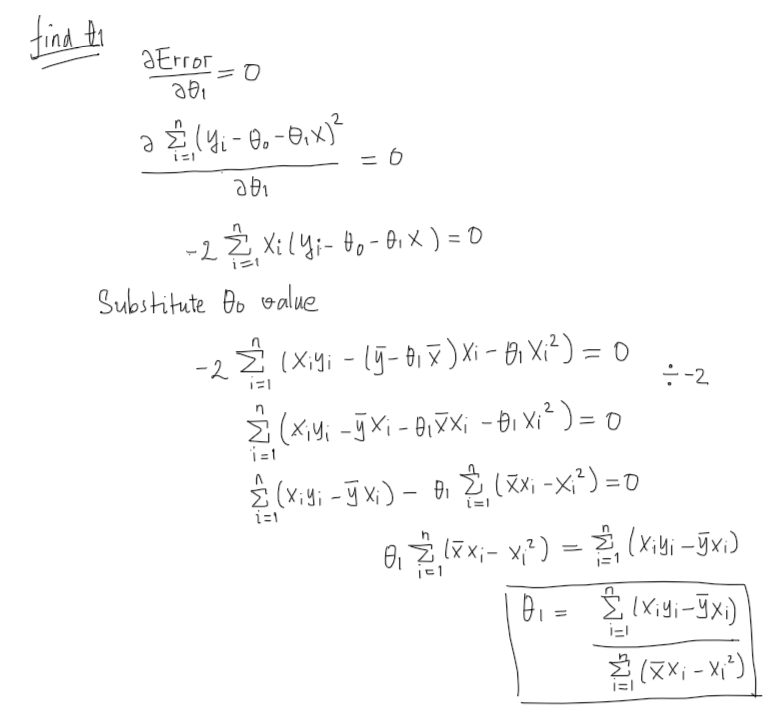 find θ₁
∂Error/∂θ₁ = 0
∂ Σᵢ₌₁ⁿ (yᵢ - θ₀ - θ₁x)² / ∂θ₁ = 0
-2 Σᵢ₌₁ⁿ xᵢ(yᵢ - θ₀ - θ₁x) = 0
Substitute θ₀ value
-2 Σᵢ₌₁ⁿ (xᵢyᵢ - (ȳ - θ₁x̄)xᵢ - θ₁xᵢ²) = 0 ÷ -2
Σᵢ₌₁ⁿ (xᵢyᵢ - ȳxᵢ - θ₁x̄xᵢ - θ₁xᵢ²) = 0
Σᵢ₌₁ⁿ (xᵢyᵢ - ȳxᵢ) - θ₁ Σᵢ₌₁ⁿ (x̄xᵢ - xᵢ²) = 0
θ₁ Σᵢ₌₁ⁿ (x̄xᵢ - xᵢ²) = Σᵢ₌₁ⁿ (xᵢyᵢ - ȳxᵢ)
θ₁ = Σᵢ₌₁ⁿ (xᵢyᵢ - ȳxᵢ) / Σᵢ₌₁ⁿ (x̄xᵢ - xᵢ²)